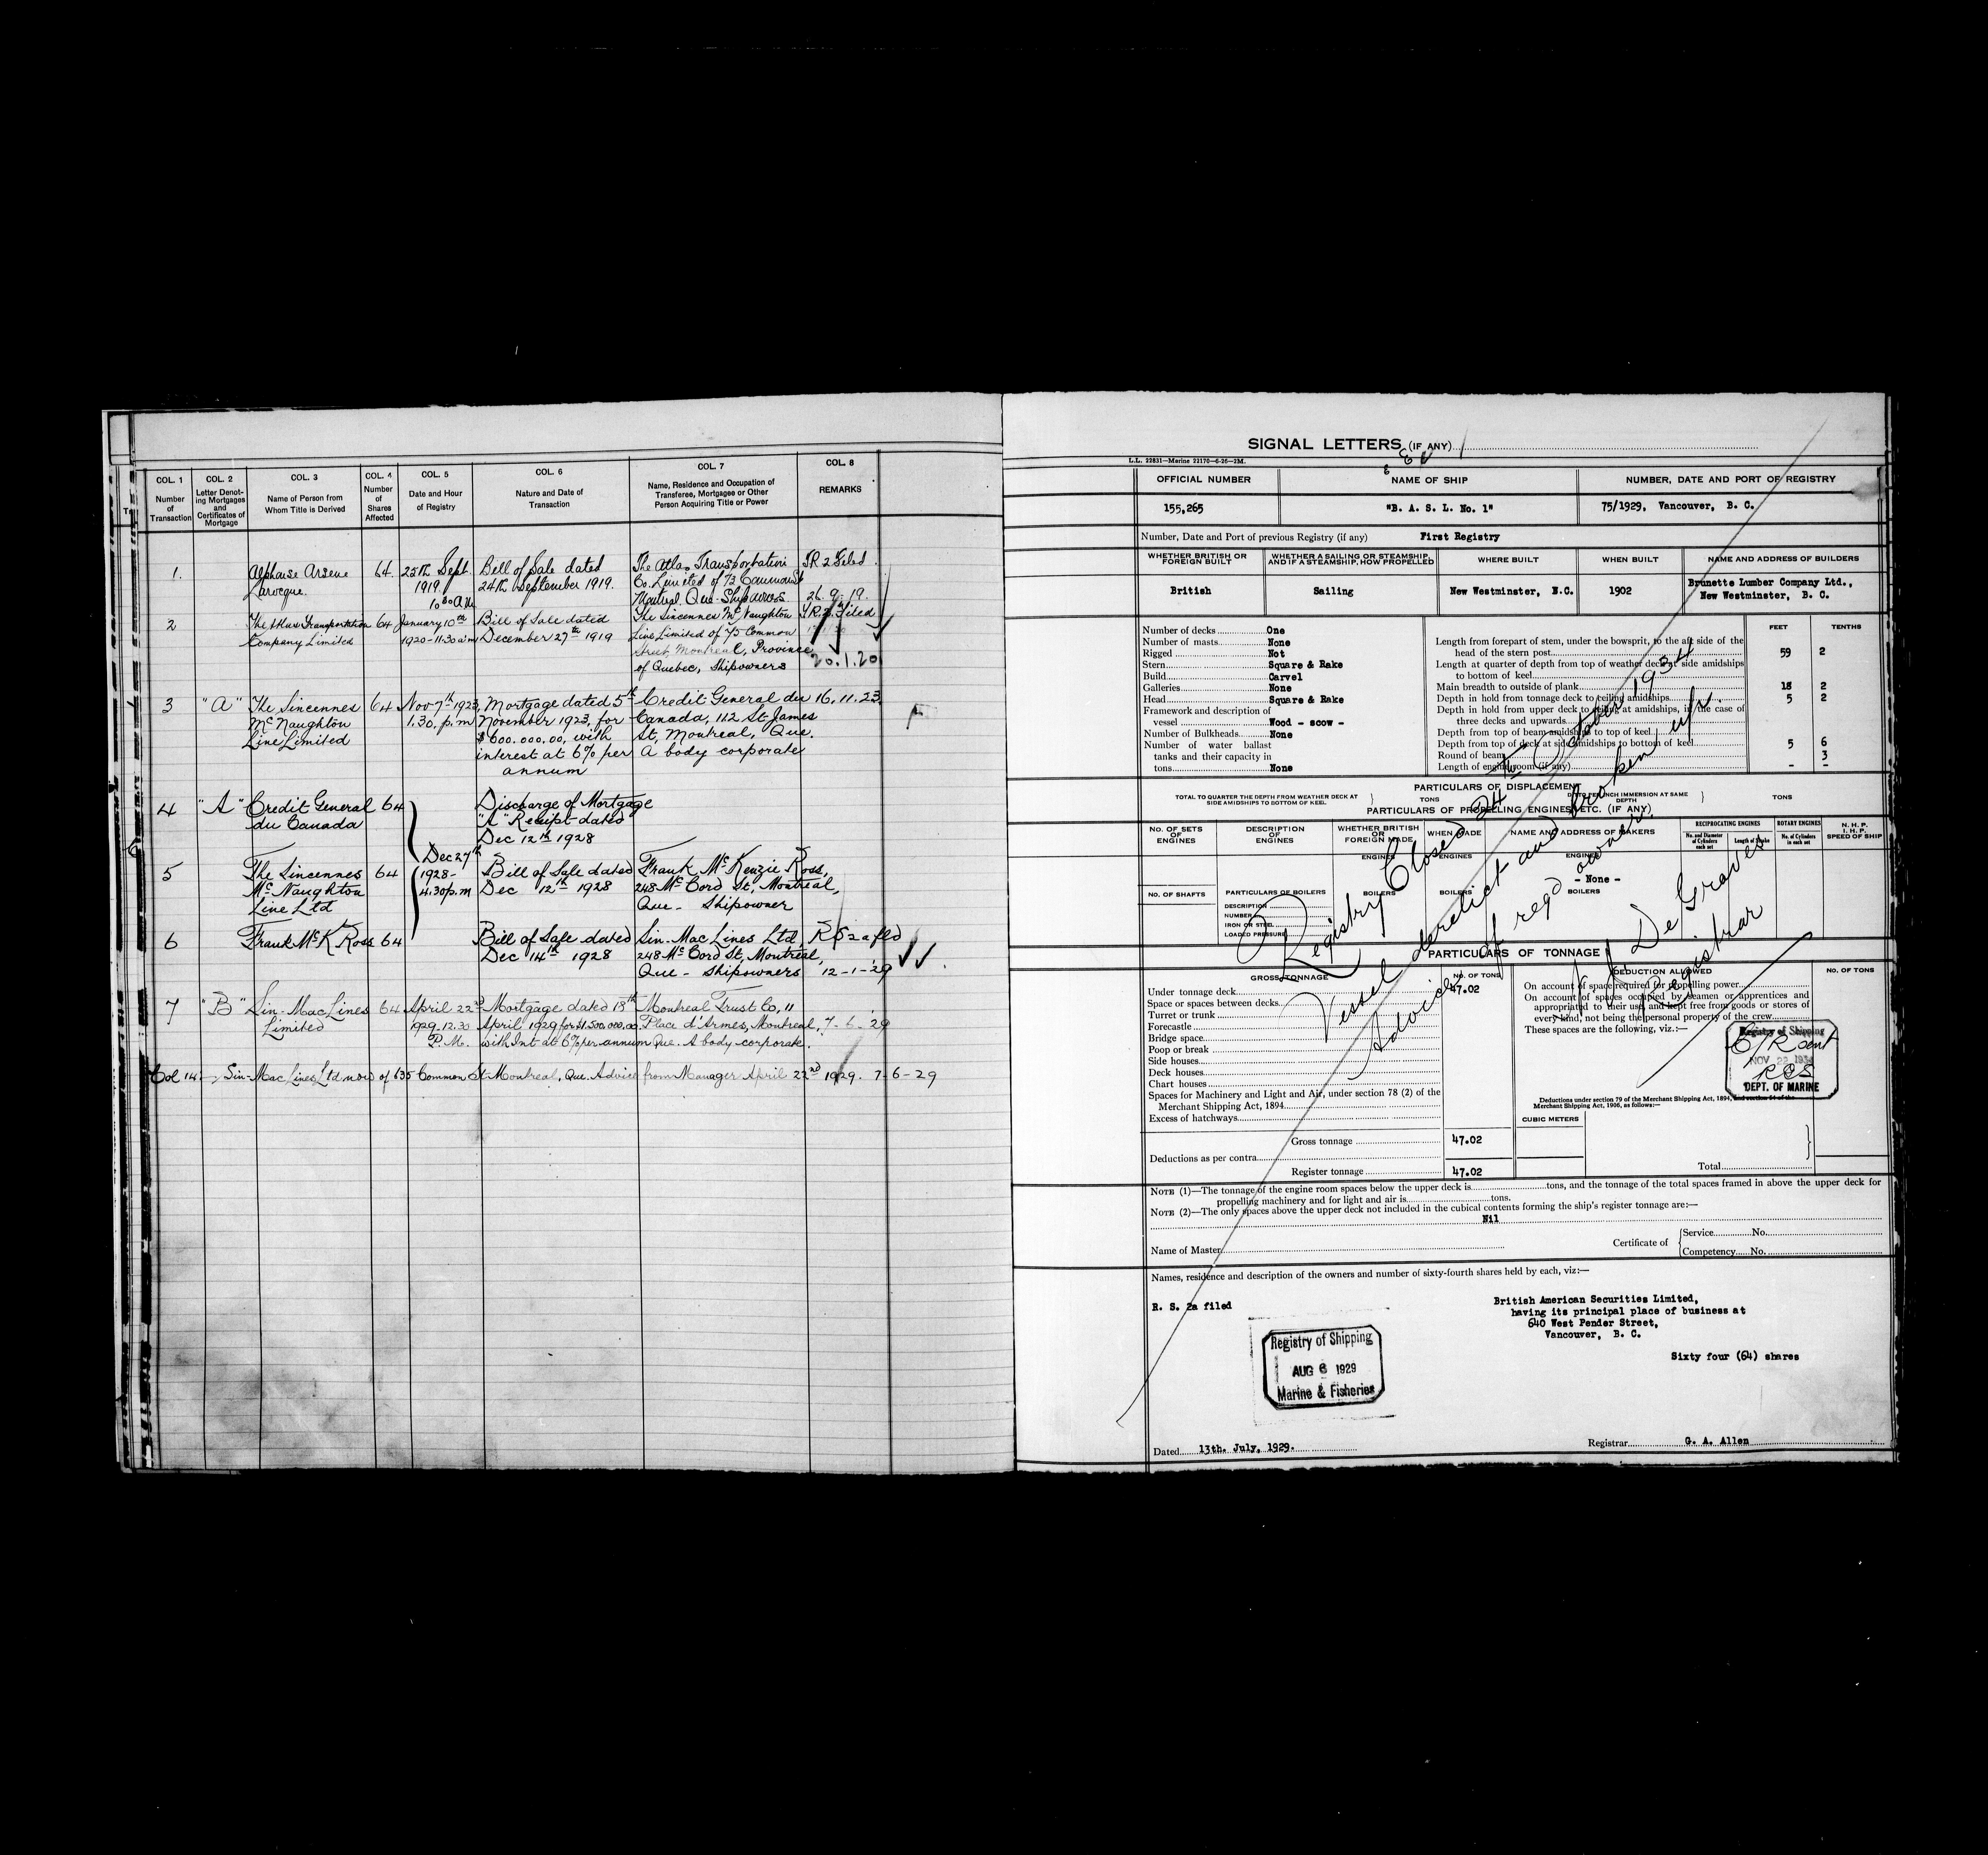 COL. 1
Number
of
Transaction
COL. 2
Letter Denot-
ing Mortgages
and
Certificates of
Mortgage
COL. 3
Name of Person from
Whom Title is Derived
COL. 4
Number
of
Shares
Affected
COL. 5
Date and Hour
of Registry
COL. 6
Nature and Date of
Transaction
COL. 7
Name, Residence and Occupation of
Transferee, Mortgagee or Other
Person Acquiring Title or Power
COL. 8
REMARKS
1.
Alphonse Arsene
Larocque.
64.
25th Sept.
1919.
10 30 A.M.
Bill of Sale dated
24th September 1919.
The Atlas Transportation
Co. Limited of 73 Common St
Montreal Que. Shipowners
2 Filed.
26.9.19.
2
The Atlas Transportation
Company Limited
64
January 10th
1920-11.30 a.m
Bill of Sale dated
December 27th 1919
The Sincennes McNaughton
Line Limited of 75 Common
Street, Montreal, Province
of Quebec, Shipowners
Filed
20.1.20
3
"A"
The Sincennes
McNaughton
Line Limited
64
Nov 7th 1923,
1.30. p.m
Mortgage dated 5th
November 1923, for
$600.000.00, with
interest at 6% per
annum
Credit General du
Canada, 112 St James
St, Montreal, Que.
A body corporate
16.11.23
4
"A"
Credit General
du Canada
64
Discharge of Mortgage
"A" Receipt dated
Dec 12th 1928
Dec 27th
1928-
4.30 p.m
5
The Sincennes
McNaughton
Line Ltd
64
Bill of Sale dated
Dec 12th 1928
Frank McKenzie Ross,
248 McCord St, Montreal,
Que - Shipowner
6
Frank McK Ross
64
Bill of Sale dated
Dec 14th 1928
Sin-Mac Lines Ltd,
248 McCord St, Montreal,
Que - Shipowners
R S 2a fld
12-1-29
7
"B"
Sin-Mac Lines
Limited
64
April 22nd
1929. 12.30
P.M.
Mortgage dated 18th
April 1929 for $1.500.000,00
with Int at 6% per annum
Montreal Trust Co, 11
Place d'Armes, Montreal,
Que. A body corporate.
7-6-29
Col 14
Sin-Mac Lines Ltd now of 635 Common St Montreal, Que. Advice from Manager April 22nd 1929. 7-6-29
SIGNAL LETTERS (IF ANY)
L.L. 22831—Marine 22170—6-26—2M.
OFFICIAL NUMBER
NAME OF SHIP
NUMBER, DATE AND PORT OF REGISTRY
155,265
"B. A. S. L. No. 1"
75/1929, Vancouver, B. C.
Number, Date and Port of previous Registry (if any)
First Registry
WHETHER BRITISH OR
FOREIGN BUILT
WHETHER A SAILING OR STEAMSHIP,
AND IF A STEAMSHIP, HOW PROPELLED
WHERE BUILT
WHEN BUILT
NAME AND ADDRESS OF BUILDERS
British
Sailing
New Westminster, B.C.
1902
Brunette Lumber Company Ltd.,
New Westminster, B. C.
Number of decks One
Number of masts None
Rigged Not
Stern Square & Rake
Build Carvel
Galleries None
Head Square & Rake
Framework and description of
vessel Wood - scow -
Number of Bulkheads None
Number of water ballast
tanks and their capacity in
tons None
FEET
TENTHS
Length from forepart of stem, under the bowsprit, to the aft side of the
head of the stern post 59 2
Length at quarter of depth from top of weather deck at side amidships
to bottom of keel
Main breadth to outside of plank 18 2
Depth in hold from tonnage deck to ceiling amidships 5 2
Depth in hold from upper deck to ceiling at amidships, in the case of
three decks and upwards
Depth from top of beam amidships to top of keel
Depth from top of deck at side amidships to bottom of keel 5 6
Round of beam 3
Length of engine room (if any) - -
PARTICULARS OF DISPLACEMENT
TOTAL TO QUARTER THE DEPTH FROM WEATHER DECK AT
SIDE AMIDSHIPS TO BOTTOM OF KEEL.
TONS
DITTO PER INCH IMMERSION AT SAME
DEPTH
TONS
PARTICULARS OF PROPELLING ENGINES, ETC. (IF ANY)
NO. OF SETS
OF
ENGINES
DESCRIPTION
OF
ENGINES
WHETHER BRITISH
OR
FOREIGN MADE
WHEN MADE
NAME AND ADDRESS OF MAKERS
RECIPROCATING ENGINES
No. and Diameter
of Cylinders
each set
Length of Stroke
ROTARY ENGINES
No. of Cylinders
in each set
N. H. P.
I. H. P.
SPEED OF SHIP
ENGINES
ENGINES
ENGINES
- None -
NO. OF SHAFTS
PARTICULARS OF BOILERS
DESCRIPTION
NUMBER
IRON OR STEEL
LOADED PRESSURE
BOILERS
BOILERS
BOILERS
Registry Closed 24th October 1934
Vessel derelict and broken up.
Advice of regd owners.
De Graves
Registrar
PARTICULARS OF TONNAGE
GROSS TONNAGE
NO. OF TONS
Under tonnage deck 47.02
Space or spaces between decks
Turret or trunk
Forecastle
Bridge space
Poop or break
Side houses
Deck houses
Chart houses
Spaces for Machinery and Light and Air, under section 78 (2) of the
Merchant Shipping Act, 1894
Excess of hatchways
Gross tonnage 47.02
Deductions as per contra
Register tonnage 47.02
DEDUCTION ALLOWED
NO. OF TONS
On account of space required for propelling power
On account of spaces occupied by seamen or apprentices and
appropriated to their use, and kept free from goods or stores of
every kind, not being the personal property of the crew
These spaces are the following, viz.:—
Registry of Shipping
C/R sent
NOV 22 1934
RGS
DEPT. OF MARINE
Deductions under section 79 of the Merchant Shipping Act, 1894, and section 54 of the
Merchant Shipping Act, 1906, as follows:—
CUBIC METERS
Total
NOTE (1)—The tonnage of the engine room spaces below the upper deck is tons, and the tonnage of the total spaces framed in above the upper deck for
propelling machinery and for light and air is tons.
NOTE (2)—The only spaces above the upper deck not included in the cubical contents forming the ship's register tonnage are:—
Nil
Name of Master
Certificate of
Service No.
Competency No.
Names, residence and description of the owners and number of sixty-fourth shares held by each, viz:—
R. S. 2a filed
British American Securities Limited,
having its principal place of business at
640 West Pender Street,
Vancouver, B. C.
Sixty four (64) shares
Registry of Shipping
AUG 6 1929
Marine & Fisheries
Dated 13th. July, 1929.
Registrar G. A. Allen